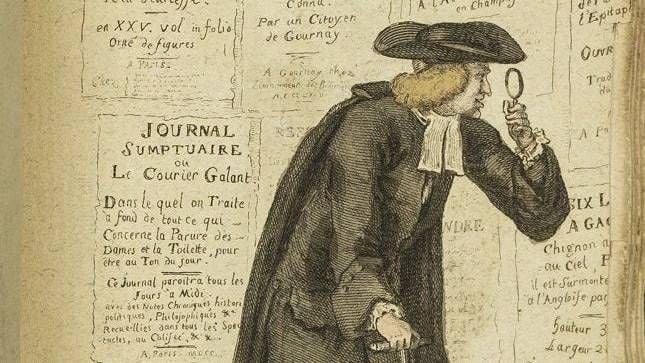 en XXV. Vol in folio
Orné de figures
A PARIS
Chez
Connu.
Par un Citoyen
de Gournay.
A Gournay chez
en Champ
l'Epitap
OUVR
Trad
du
A P
JOURNAL
SUMPTUAIRE
ou
Le Courier Galant
Dans le quel on Traite
a fond de tout ce qui
Concerne la Parure des
Dames et la Toilette, pour
être au Ton du jour.
Ce Journal paroitra tous les
Jours a Midi
avec des Notes Chroniques histori
politiques, Philosophiques &
Recueillies dans tous les Spec
tacles, au Colisée, & &
A. Paris. MDCC
NDRE
SIX L
A GAG
Chignon a
au Ciel, P
il est Surmonté
à l'Angloise par
Hauteur 3
Largeur 2